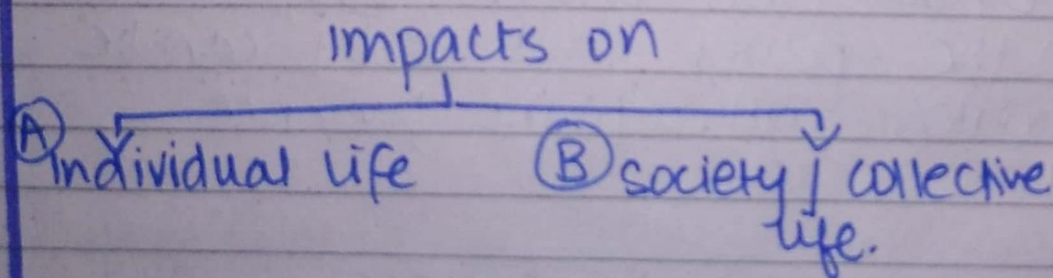 Impacts on
(A) individual life (B) society / collective
life.